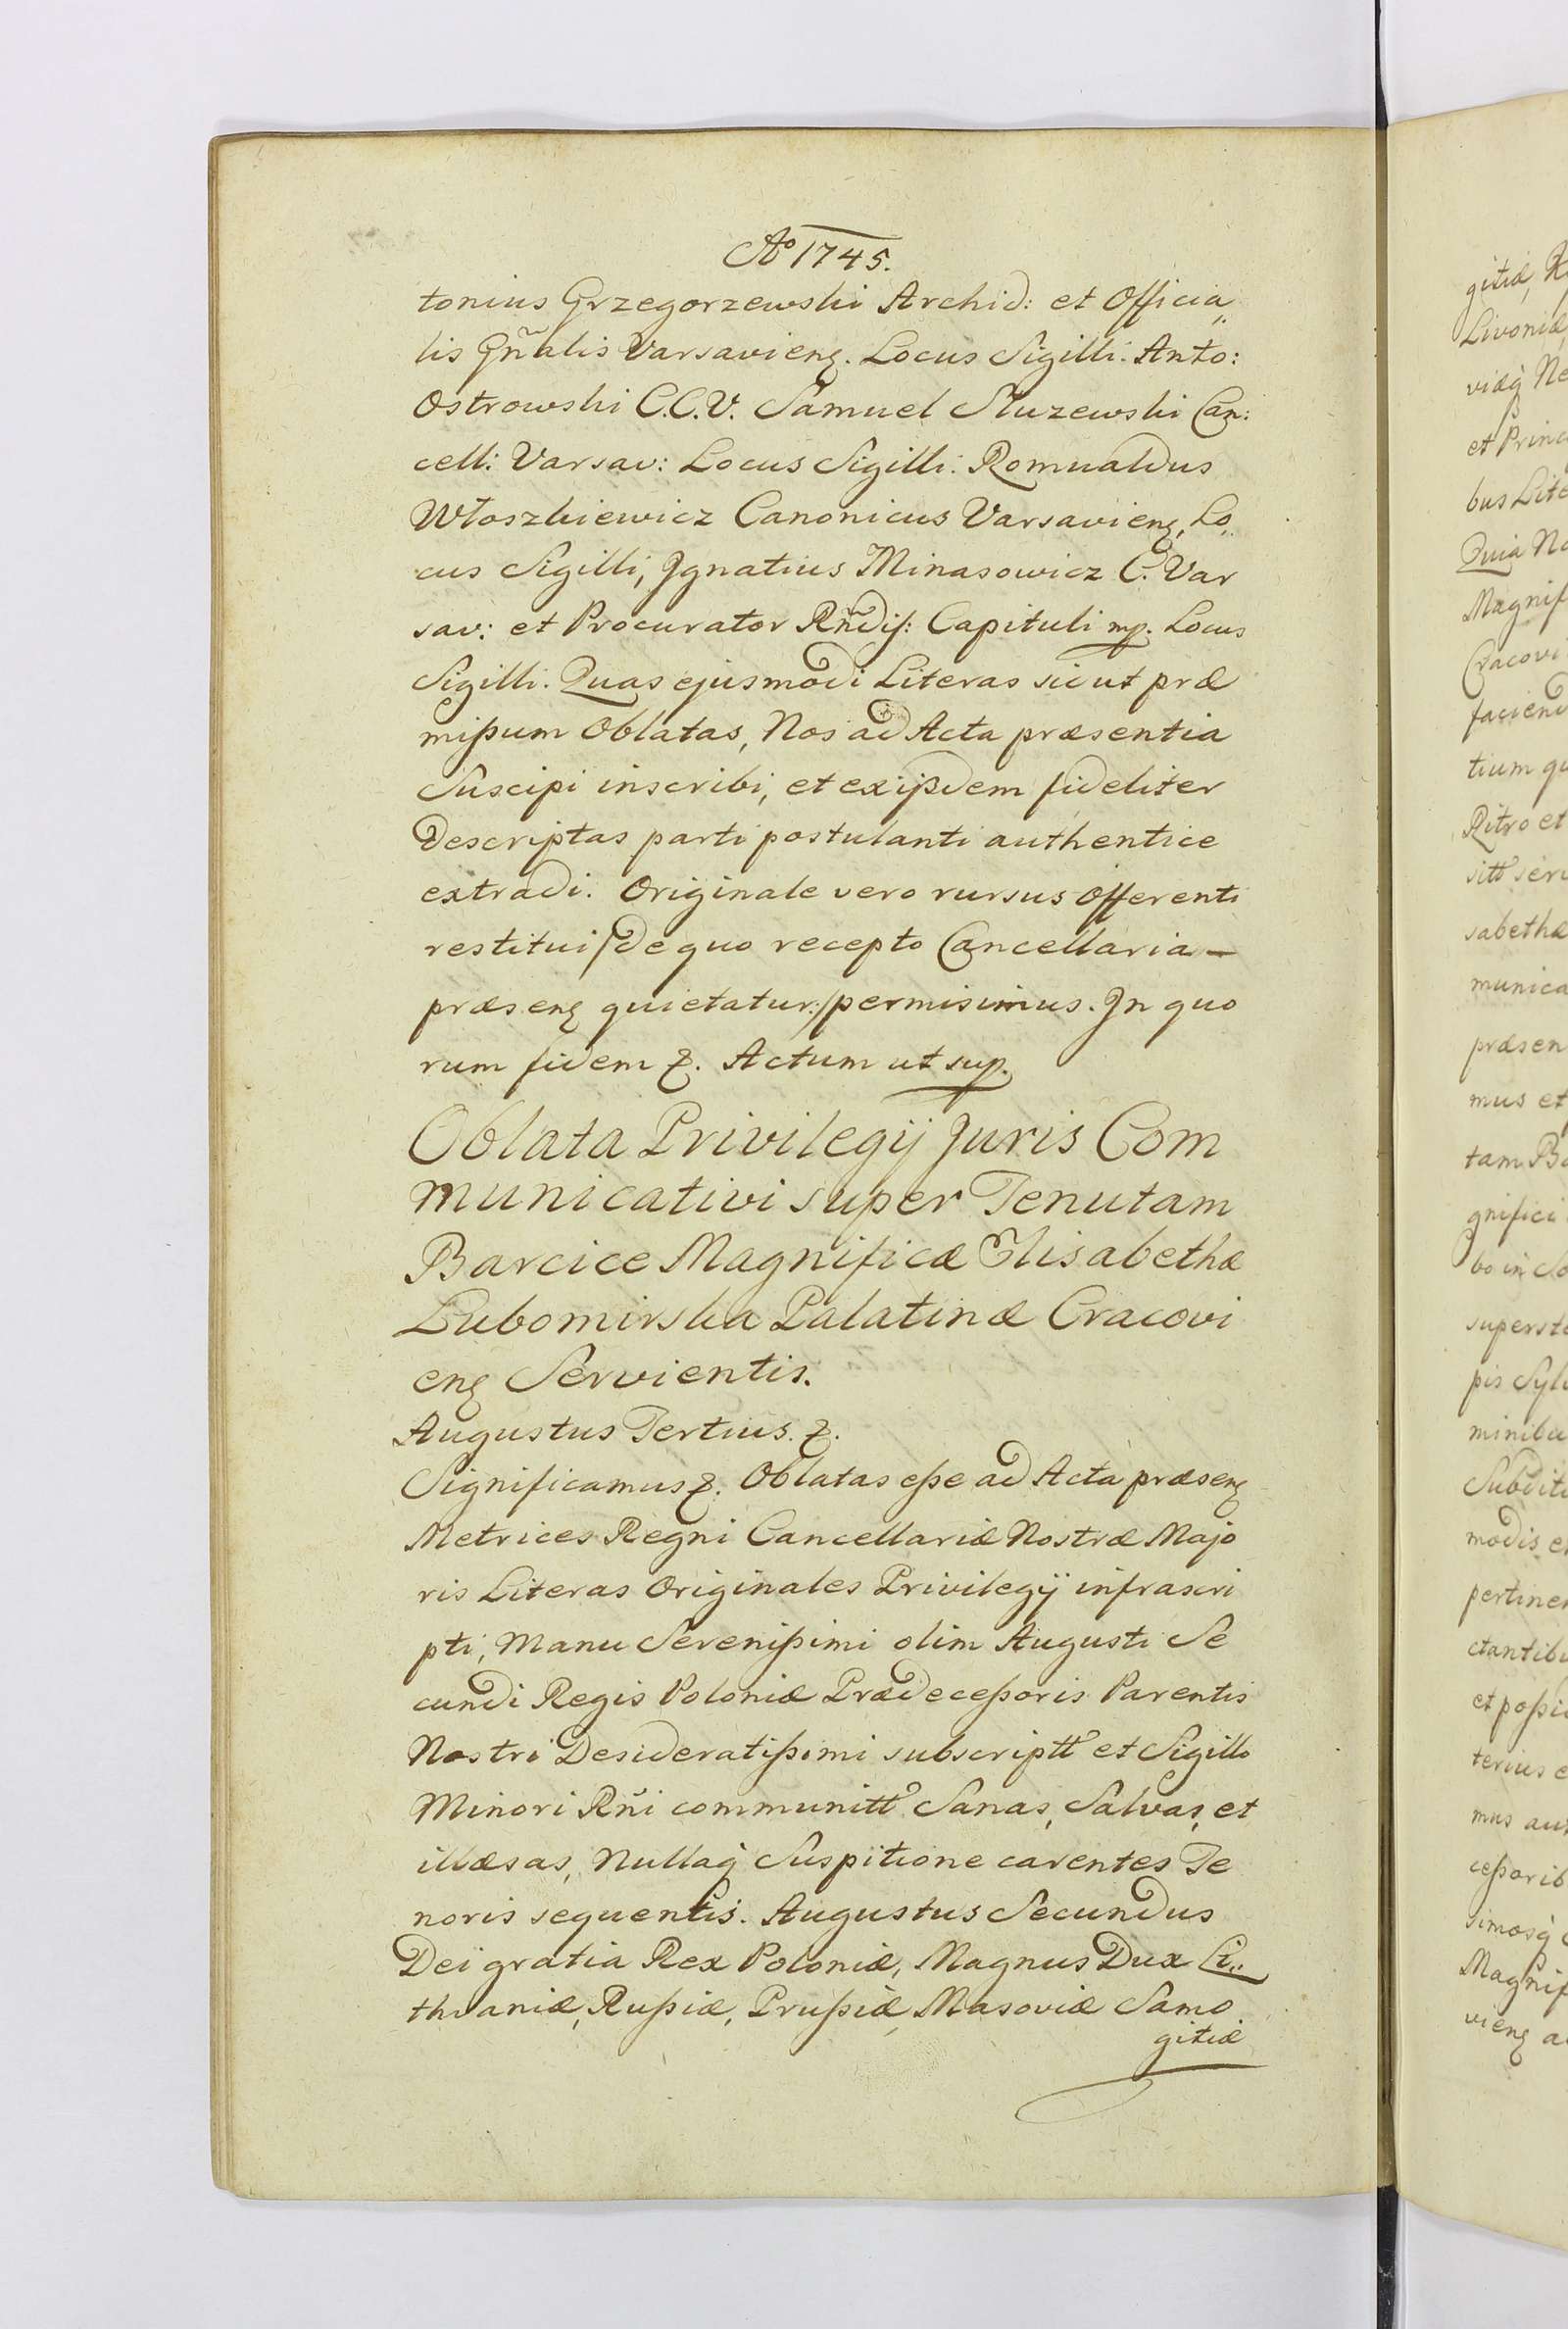 Aº 1745.
tonius Grzegorzewski Archid: et Officia„
lis Gñalis Varsavienȩ. Locus Sigilli. Anto:
Ostrowski C.C.V. Samuel Sluzewski Can:
cell: Varsav: Locus Sigilli. Romualdus
Włoszkiewicz Canonicus Varsavienȩ, Lo„
cus Sigilli, Jgnatius Minasowicz C. Var
sav: et Procurator Rñdiß: Capituli mp. Locus
Sigilli. Quas ejusmodi Literas sicut præ
mißum Oblatas, Nos ad Acta præsentia
Suscipi inscribi, et ex ijsdem fideliter
Descriptas parti postulanti authentice
extradi. Originale vero rursus offerenti
restitui /de quo recepto Cancellaria —
præsenȩ quietatur:/ permisimus. Jn quo
rum fidem &. Actum ut sup.
Oblata Privilegij Juris Com
municativi super Tenutam
Barcice Magnificæ Elisabethæ
Lubomirska Palatinæ Cracovi
enȩ Servientis.
Augustus Tertius. &.
Significamus &. Oblatas eße ad Acta præsenȩ
Metrices Regni Cancellariæ Nostræ Majo
ris Literas Originales Privilegij infrascri
pti, Manu Serenißimi olim Augusti Se
cundi Regis Poloniæ Prædeceßoris Parentis
Nostri Desideratißimi subscriptt et Sigillo
Minori Rñi communitt Sanas, Salvas, et
illæsas, Nullaq̀ Suspitione carentes Te
noris sequentis. Augustus Secundus
Dei gratia Rex Poloniæ, Magnus Dux Li„
thvaniæ, Rußiæ, Prußiæ, Masoviæ Samo
gitiæ
gitiæ, R
Livoniæ
viæq̀ Ne
et Princi
bus Lite
Quia No
Magnif
Cracovi
faciend
tium qu
Ritro et
sitt serv
sabethæ
munica
præsen
mus et
tam Ba
gnifici
bo in So
superste
pis Sylv
minibu
Subditi
modis e
pertinen
ctantibu
et poßid
terius e
mus aut
ceßorib
simosq̀
Magnif
vienȩ a